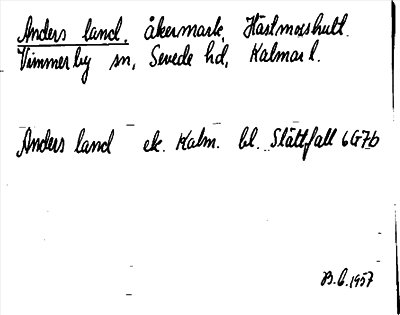 Anders land, åkermark, Hästmoshult.
Vimmerby sn, Sevede hd, Kalmar l.
Anders land ek. Kalm. bl. Slättfall 6G7b
B.G. 1957